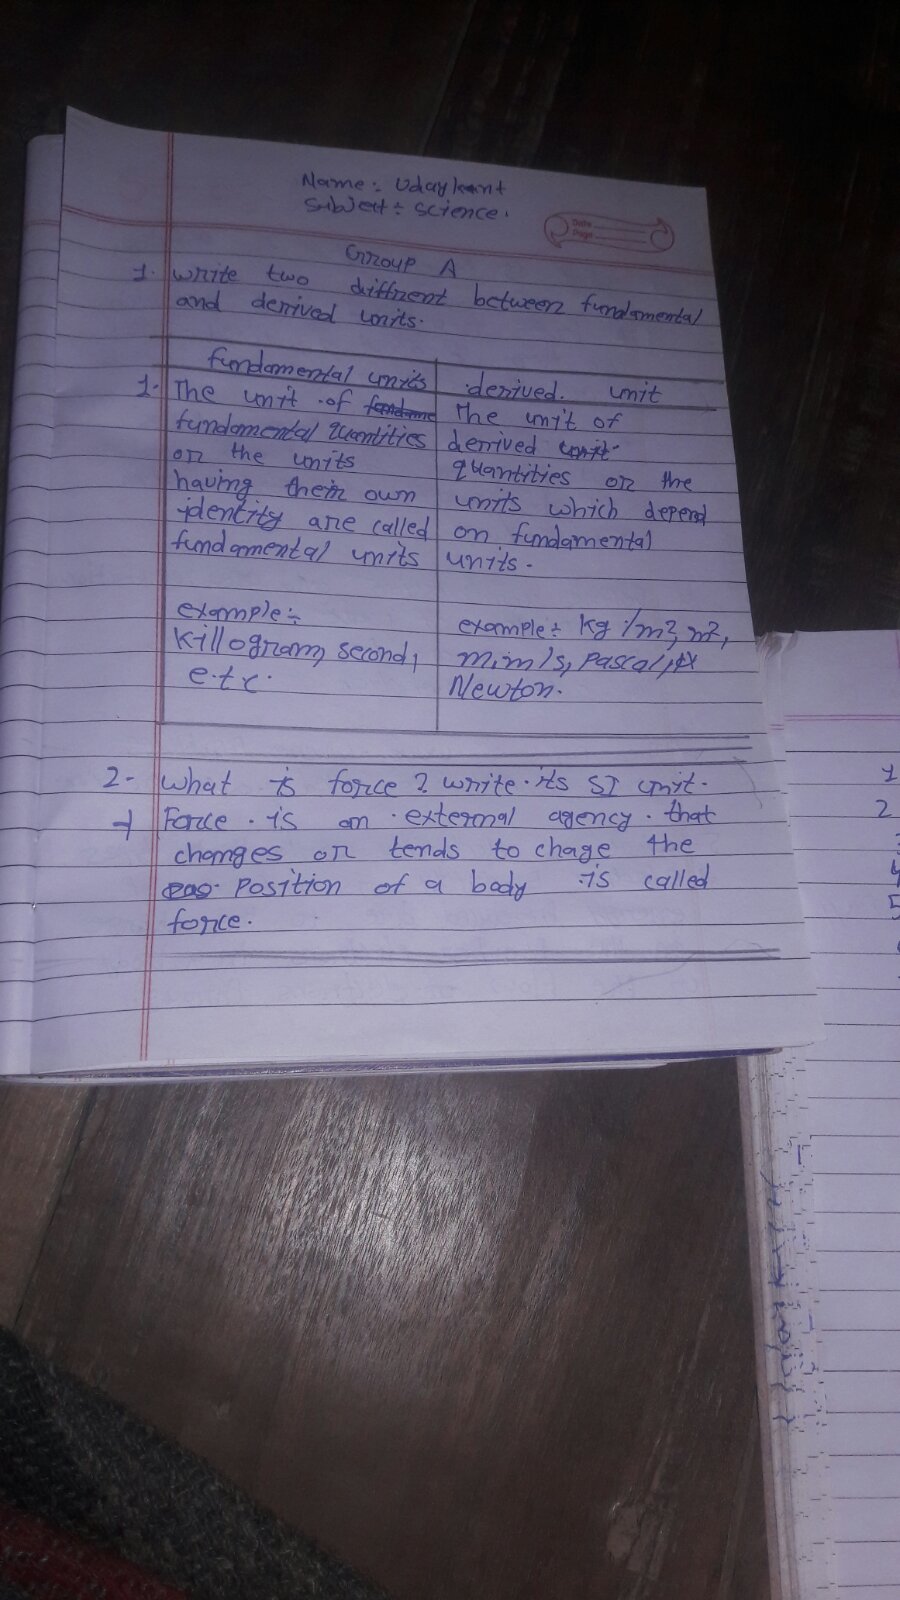 Name :- Udaykant
Subject :- science.
Date
Page
Group A
1. write two diffrent between fundamental
and derived units.
fundamental units
derived. unit
1. The unit of
fundamental quantities
or the units
having their own
identity are called
fundamental units
The unit of
derived
quantities or the
units which depend
on fundamental
units.
example :-
Killogram, second,
e.t.c.
example :- kg /m3, m2,
m, m/s, pascal,
Newton.
2- What is force ? write its SI unit.
→ Force is an external agency that
changes or tends to chage the
position of a body is called
force.
1
2
3
4
5